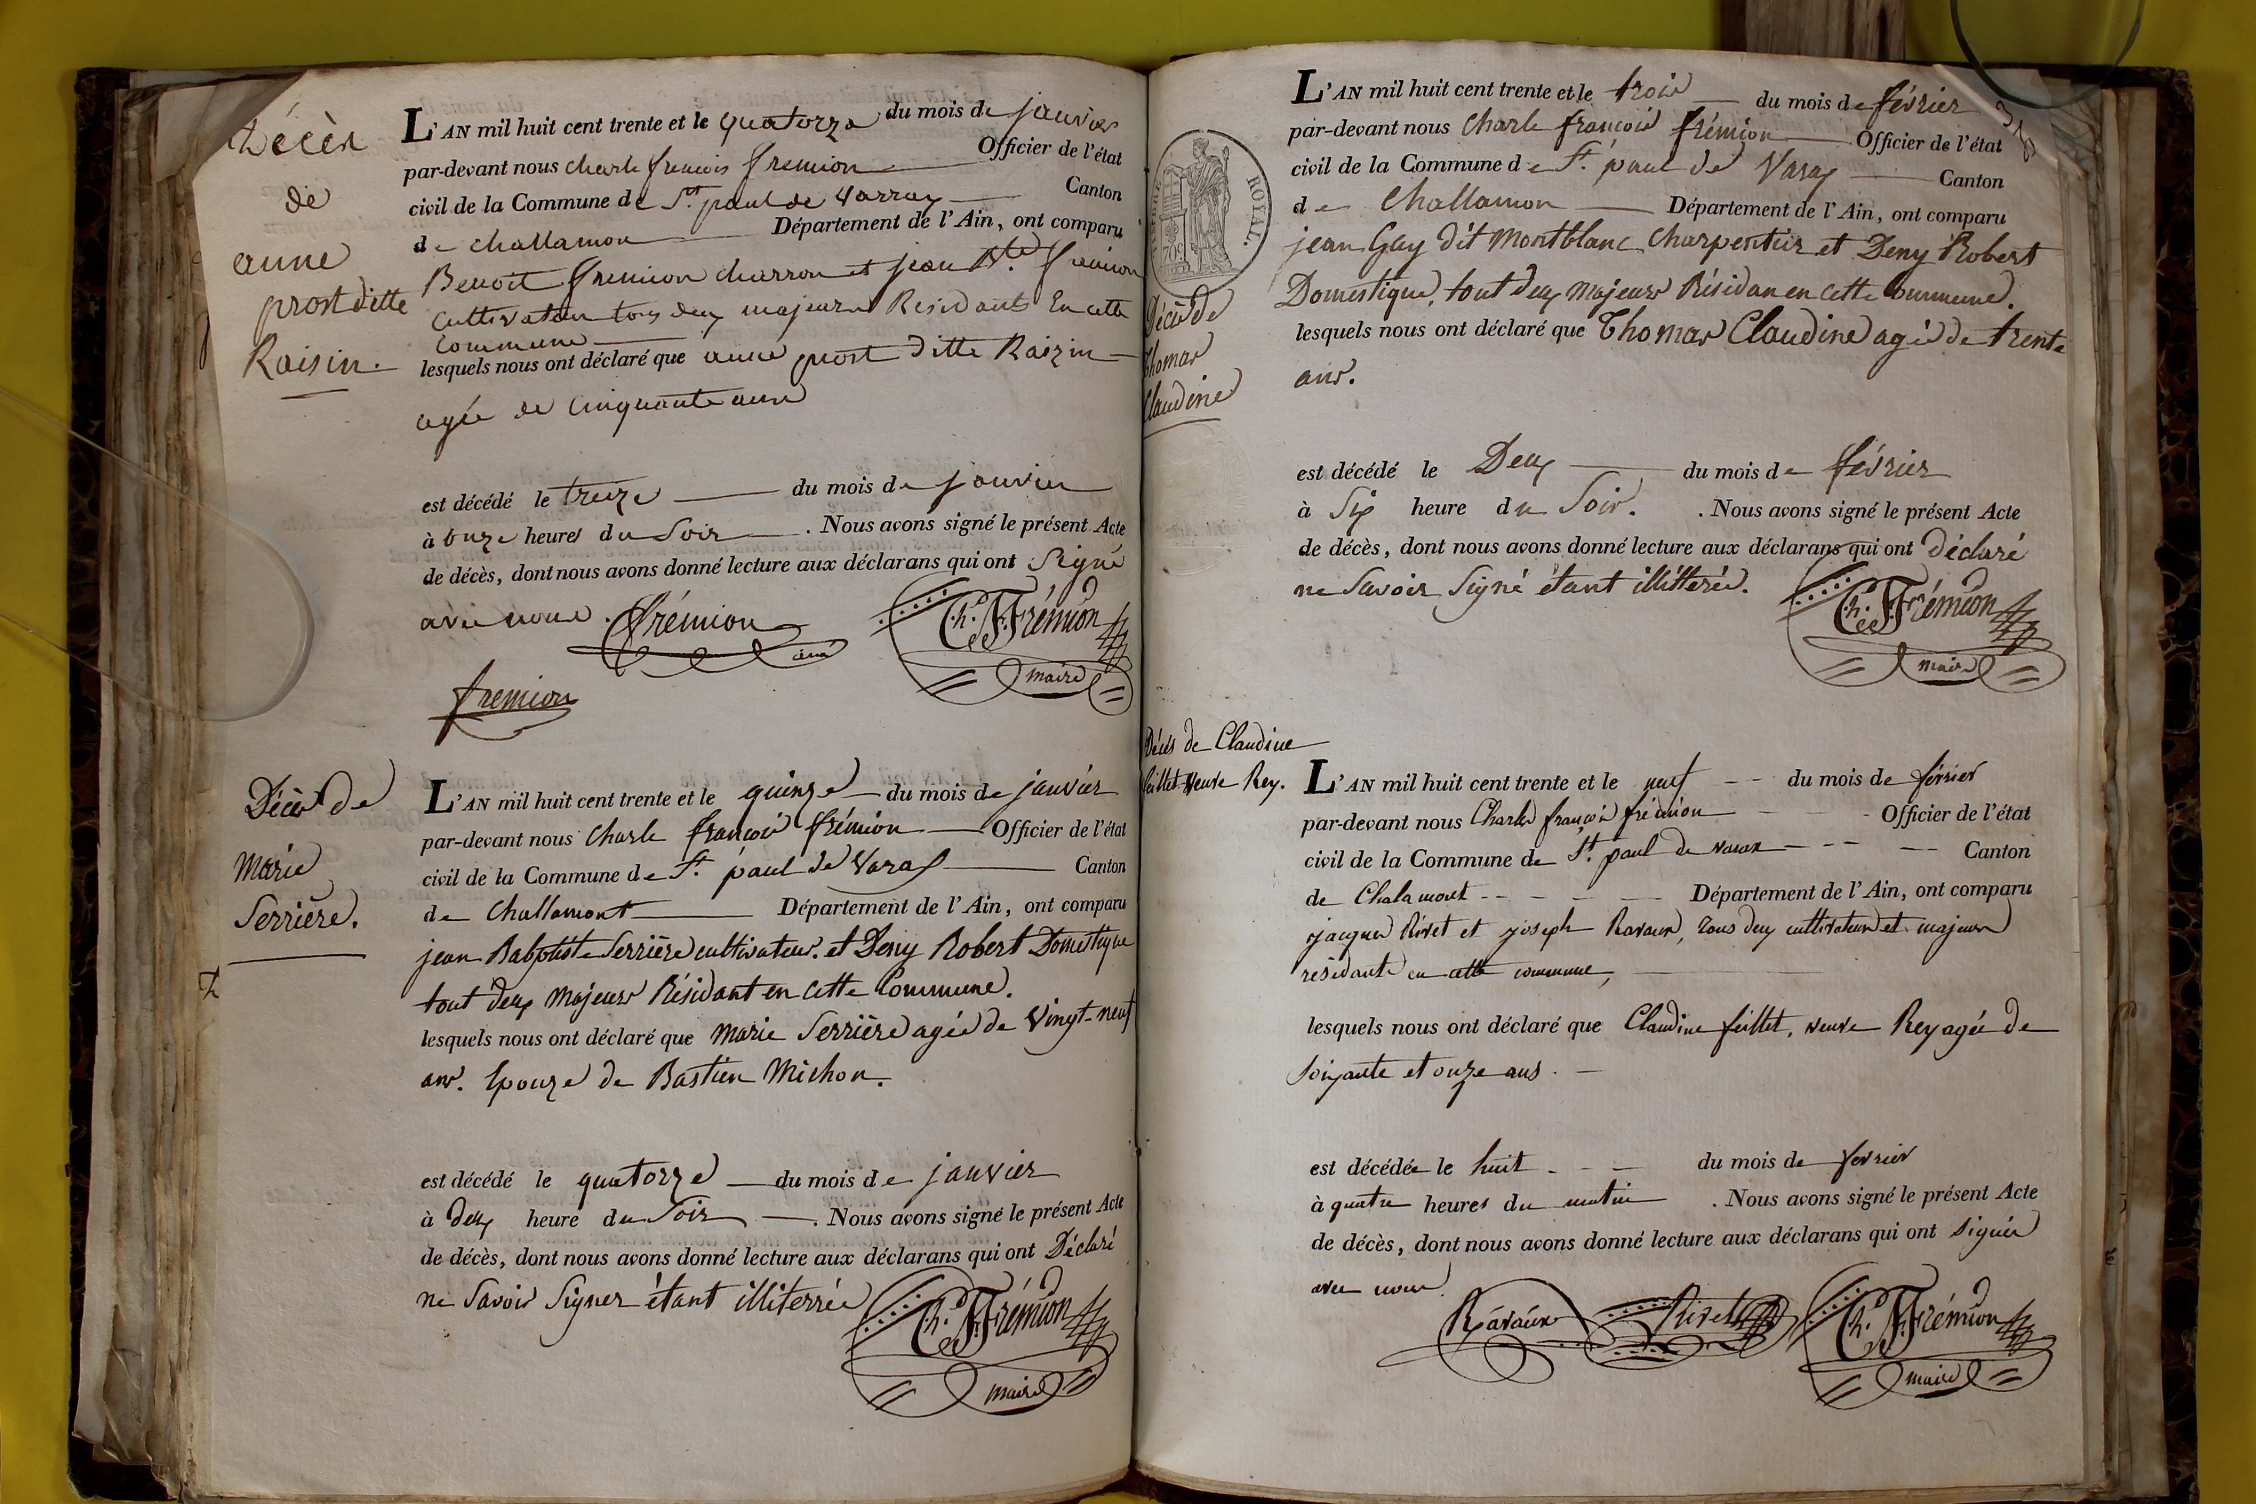 Décès
de
anne
prost ditte
Raisin.
L'AN mil huit cent trente et le quatorze du mois de janvier
par-devant nous Charle françois fremion Officier de l'état
civil de la Commune de St. paul de Varray Canton
de challamon Département de l'Ain, ont comparu
Benoit fremion charron et jean Bte. fremion
cultivateur tous deux majeurs Residants En cette
Commune
lesquels nous ont déclaré que anne prost ditte Raizin
agée de cinquante ans
est décédé le treize du mois de janvier
à onze heures du Soir . Nous avons signé le présent Acte
de décès, dont nous avons donné lecture aux déclarans qui ont Signé
avec nous. frémion ainé Ch. F. Frémion maire
fremion
Décès de
Marie
Serrière.
L'AN mil huit cent trente et le quinze du mois de janvier
par-devant nous Charle françois frémion Officier de l'état
civil de la Commune de St. paul de Varax Canton
de Challamont Département de l'Ain, ont comparu
jean Babptiste Serrière cultivateur. et Deny Robert Domestique
tout deux Majeurs Résidant en Cette Commune.
lesquels nous ont déclaré que Marie Serrière agée de Vingt-neuf
ans. Epouze de Bastien Michon.
est décédé le quatorze du mois de janvier
à deux heure du Soir . Nous avons signé le présent Acte
de décès, dont nous avons donné lecture aux déclarans qui ont Déclaré
ne Savoir Signer étant illiterrée Ch. F. Frémion
maire
318
ROYAL.
Décès de
Thomas
Claudine
L'AN mil huit cent trente et le trois du mois de février
par-devant nous Charle françois frémion Officier de l'état
civil de la Commune de St. paul de Varax Canton
de Challamon Département de l'Ain, ont comparu
jean Gay dit Montblanc Charpentier et Deny Robert
Domestique, tout deux Majeurs Résidan en Cette Commune.
lesquels nous ont déclaré que Thomas Claudine agée de trente
ans.
est décédé le Deux du mois de février
à Six heure du Soir. . Nous avons signé le présent Acte
de décès, dont nous avons donné lecture aux déclarans qui ont déclaré
ne Savoir Signé étant illitterée. Ch. F. Frémion
maire
Décès de Claudine
feillet Veuve Rey.
L'AN mil huit cent trente et le neuf du mois de février
par-devant nous Charles françois frémion Officier de l'état
civil de la Commune de St. paul de varax Canton
de Chalamont Département de l'Ain, ont comparu
jacques Rivet et joseph Ravaux, tous deux cultivateurs et majeurs
résidants en cette commune,
lesquels nous ont déclaré que Claudine feillet, veuve Rey agée de
Soixante et onze ans.
est décédée le huit du mois de fevrier
à quatre heures du matin . Nous avons signé le présent Acte
de décès, dont nous avons donné lecture aux déclarans qui ont signés
avec nous.
Ravaux Rivet Ch. F. Frémion
maire